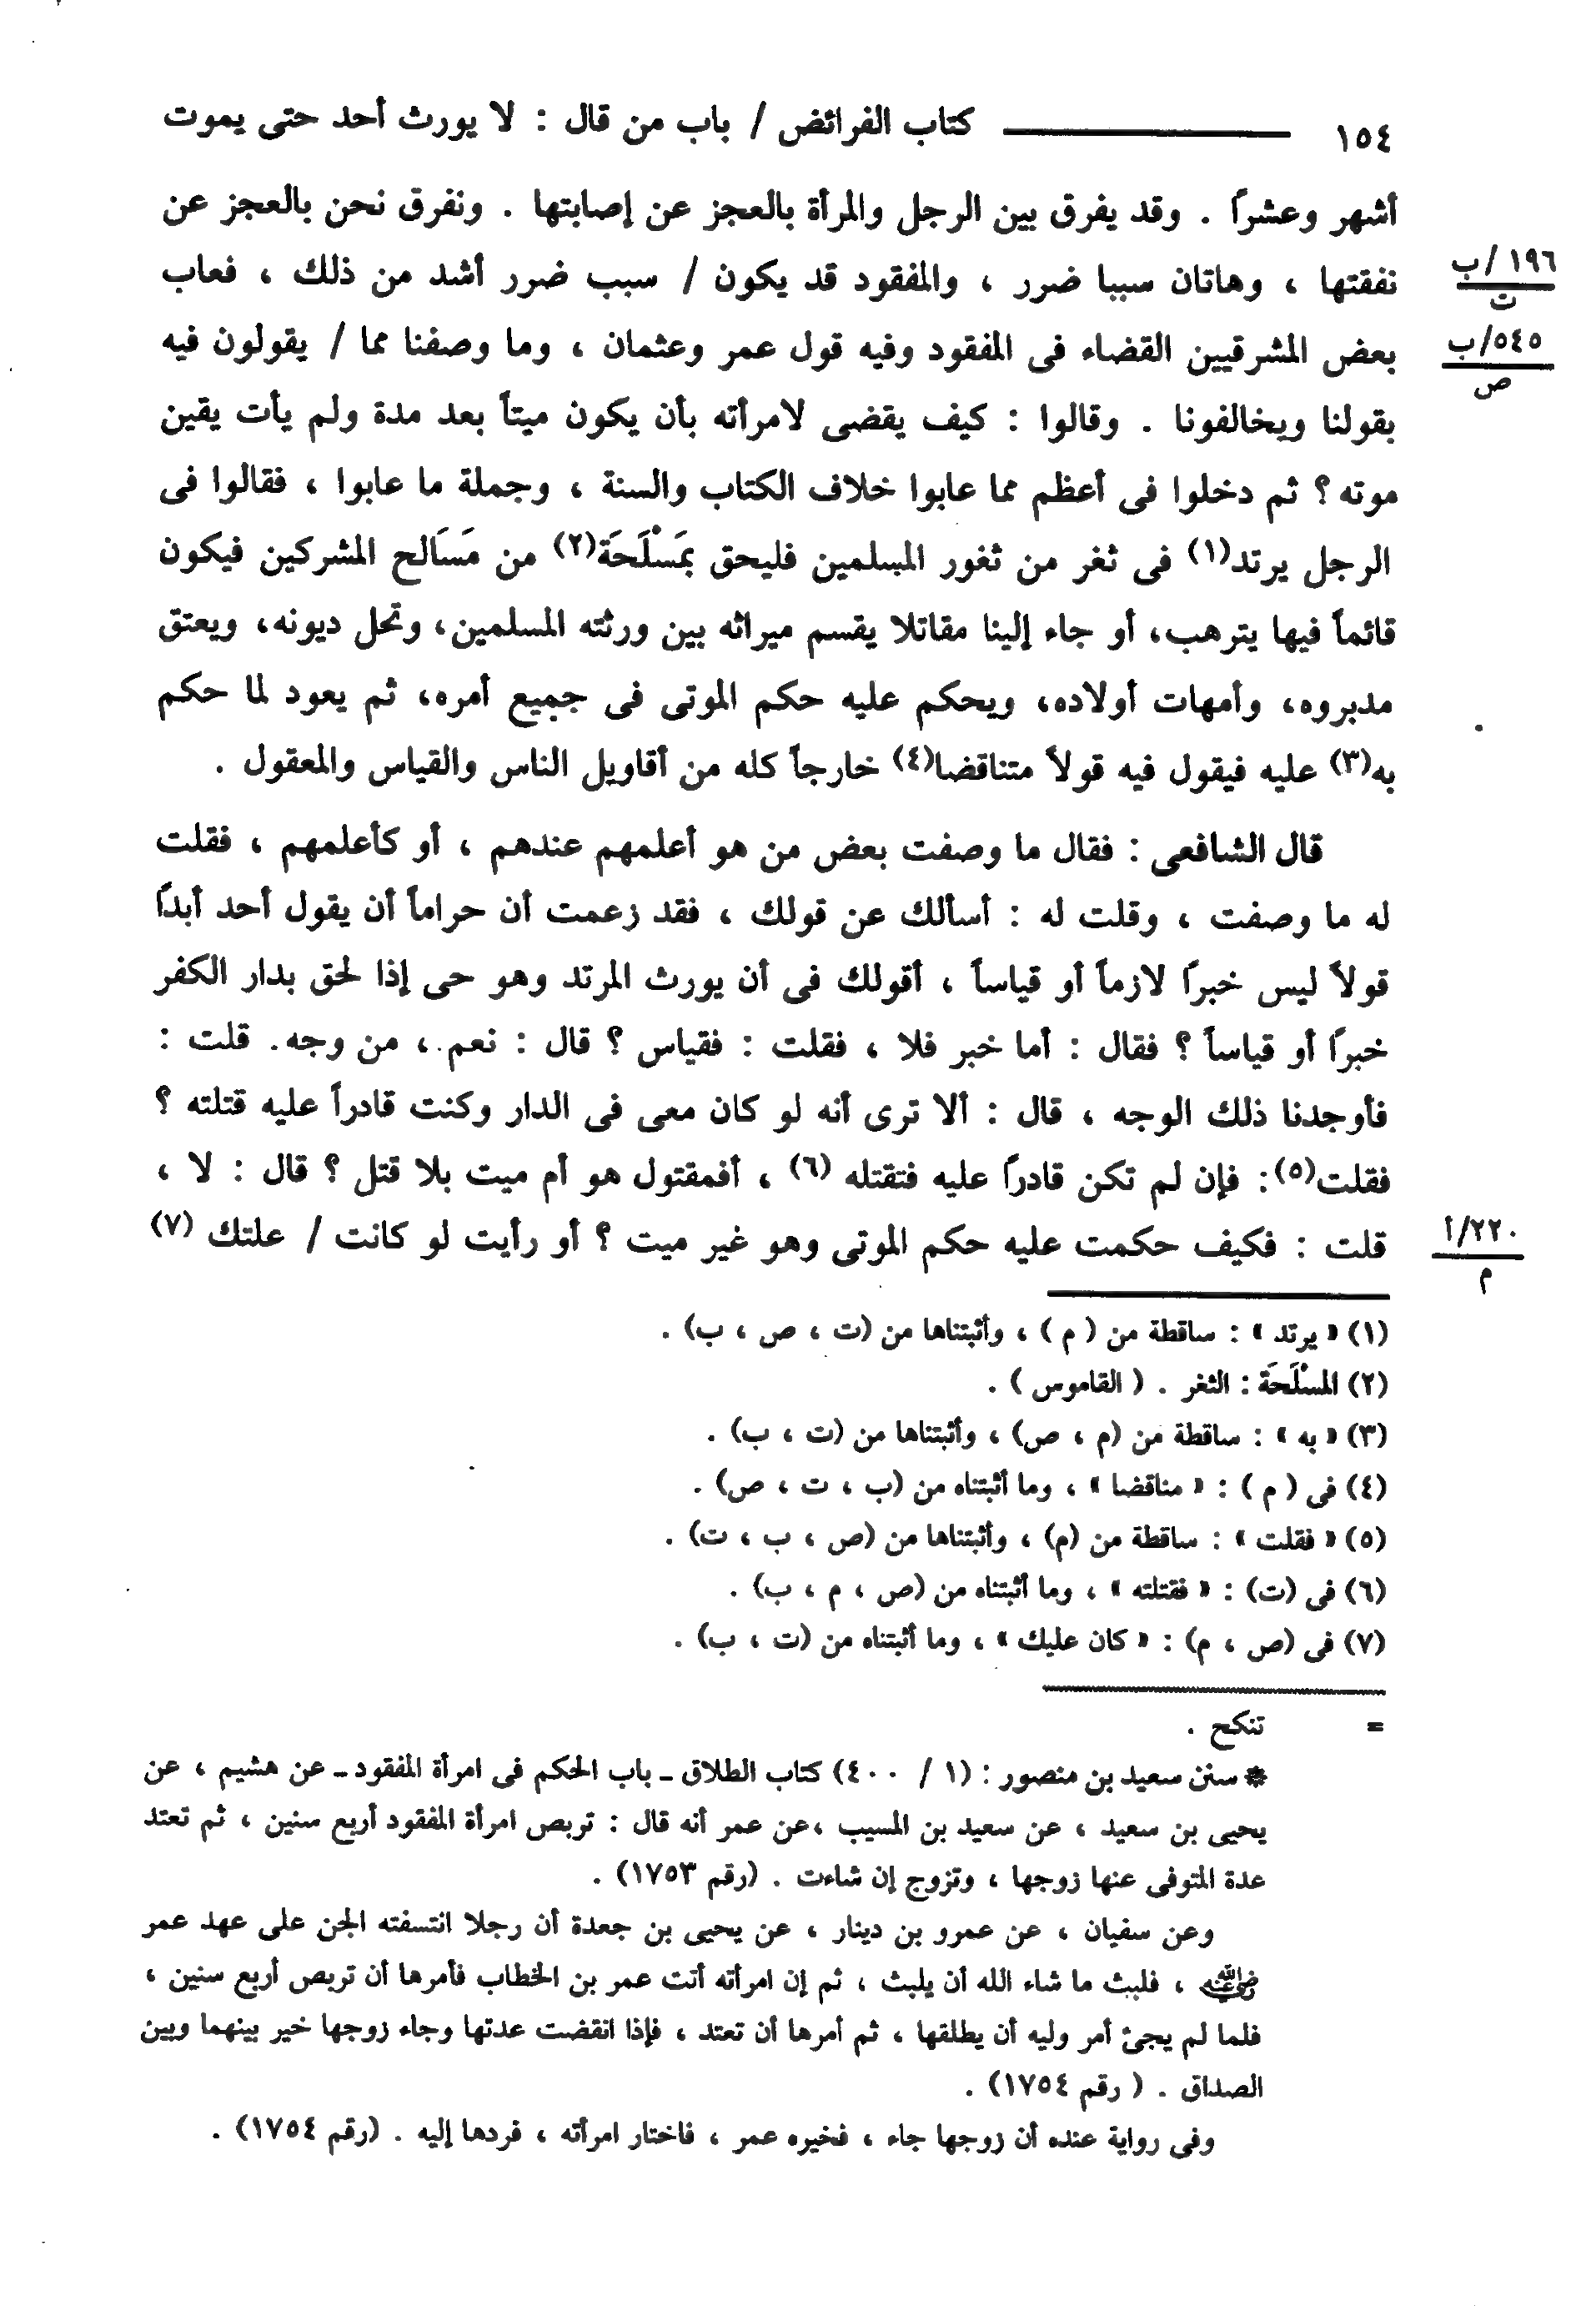 ١٥٤ كتاب الفرائض / باب من قال : لا يورث أحد حتى يموت
أشهر وعشراً . وقد يفرق بين الرجل والمرأة بالعجز عن إصابتها . ونفرق نحن بالعجز عن
نفقتها ، وهاتان سببا ضرر ، والمفقود قد يكون / سبب ضرر أشد من ذلك ، فعاب
١٩٦/ب
ت
بعض المشرقيين القضاء فى المفقود وفيه قول عمر وعثمان ، وما وصفنا مما / يقولون فيه
٥٤٥/ب
ص
بقولنا ويخالفونا . وقالوا : كيف يقضى لامرأته بأن يكون ميتاً بعد مدة ولم يأت يقين
موته ؟ ثم دخلوا فى أعظم مما عابوا خلاف الكتاب والسنة ، وجملة ما عابوا ، فقالوا فى
الرجل يرتد(١) فى ثغر من ثغور المسلمين فليحق بمَسْلَحَة(٢) من مَسَالح المشركين فيكون
قائماً فيها يترهب، أو جاء إلينا مقاتلا يقسم ميراثه بين ورثته المسلمين، وتحل ديونه، ويعتق
مدبروه، وأمهات أولاده، ويحكم عليه حكم الموتى فى جميع أمره، ثم يعود لما حكم
به(٣) عليه فيقول فيه قولاً متناقضا(٤) خارجاً كله من أقاويل الناس والقياس والمعقول .
قال الشافعى : فقال ما وصفت بعض من هو أعلمهم عندهم ، أو كأعلمهم ، فقلت
له ما وصفت ، وقلت له : أسألك عن قولك ، فقد زعمت أن حراماً أن يقول أحد أبداً
قولاً ليس خبراً لازماً أو قياساً ، أقولك فى أن يورث المرتد وهو حى إذا لحق بدار الكفر
خبراً أو قياساً ؟ فقال : أما خبر فلا ، فقلت : فقياس ؟ قال : نعم ، من وجه . قلت :
فأوجدنا ذلك الوجه ، قال : ألا ترى أنه لو كان معى فى الدار وكنت قادراً عليه قتلته ؟
فقلت(٥): فإن لم تكن قادراً عليه فتقتله (٦) ، أفمقتول هو أم ميت بلا قتل ؟ قال : لا ،
قلت : فكيف حكمت عليه حكم الموتى وهو غير ميت ؟ أو رأيت لو كانت / علتك (٧)
٢٢٠/أ
م
(١) « يرتد » : ساقطة من ( م ) ، وأثبتناها من (ت ، ص ، ب) .
(٢) المسْلَحَة : الثغر . ( القاموس ) .
(٣) « به » : ساقطة من (م ، ص) ، وأثبتناها من (ت ، ب) .
(٤) فى ( م ) : « مناقضا » ، وما أثبتناه من (ب ، ت ، ص) .
(٥) « فقلت » : ساقطة من (م) ، وأثبتناها من (ص ، ب ، ت) .
(٦) فى (ت) : « فقتلته » ، وما أثبتناه من (ص ، م ، ب) .
(٧) فى (ص ، م) : « كان عليك » ، وما أثبتناه من (ت ، ب) .
= تنكح .
* سنن سعيد بن منصور : (١ / ٤٠٠) كتاب الطلاق ـ باب الحكم فى امرأة المفقود ـ عن هشيم ، عن
يحيى بن سعيد ، عن سعيد بن المسيب ،عن عمر أنه قال : تربص امرأة المفقود أربع سنين ، ثم تعتد
عدة المتوفى عنها زوجها ، وتزوج إن شاءت . (رقم ١٧٥٣) .
وعن سفيان ، عن عمرو بن دينار ، عن يحيى بن جعدة أن رجلا انتسفته الجن على عهد عمر
رضي الله عنه ، فلبث ما شاء الله أن يلبث ، ثم إن امرأته أتت عمر بن الخطاب فأمرها أن تربص أربع سنين ،
فلما لم يجئ أمر وليه أن يطلقها ، ثم أمرها أن تعتد ، فإذا انقضت عدتها وجاء زوجها خير بينهما وبين
الصداق . ( رقم ١٧٥٤) .
وفى رواية عنده أن زوجها جاء ، فخيره عمر ، فاختار امرأته ، فردها إليه . (رقم ١٧٥٤) .